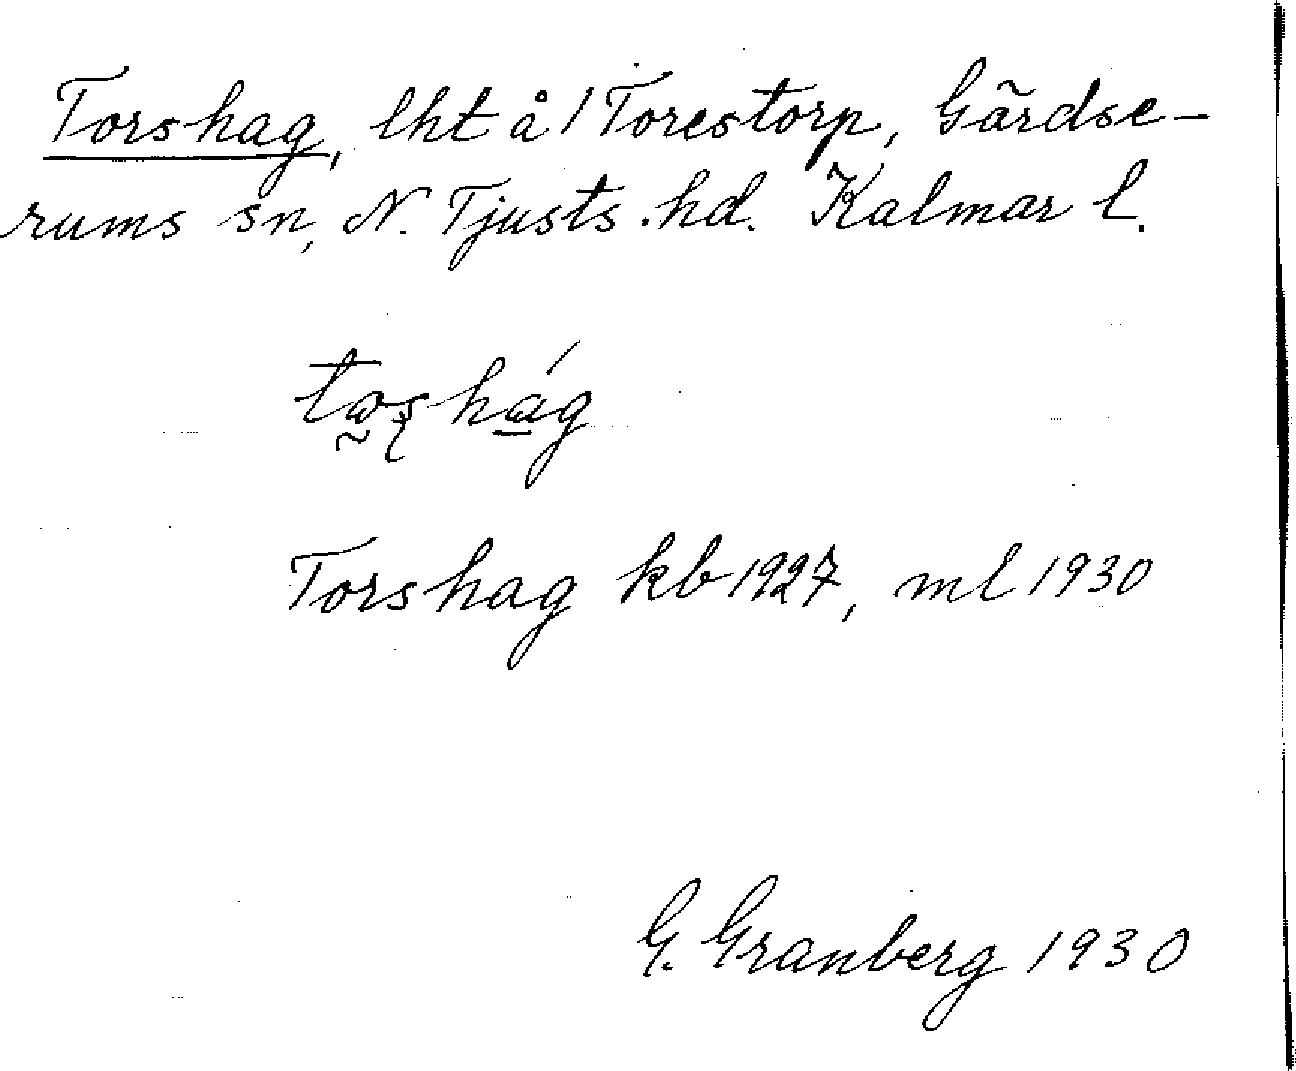 Torshag, lht å 1 Torestorp, Gärdse-
rums sn, N. Tjusts hd. Kalmar l.
Torshag kb 1927, ml 1930
G. Granberg 1930